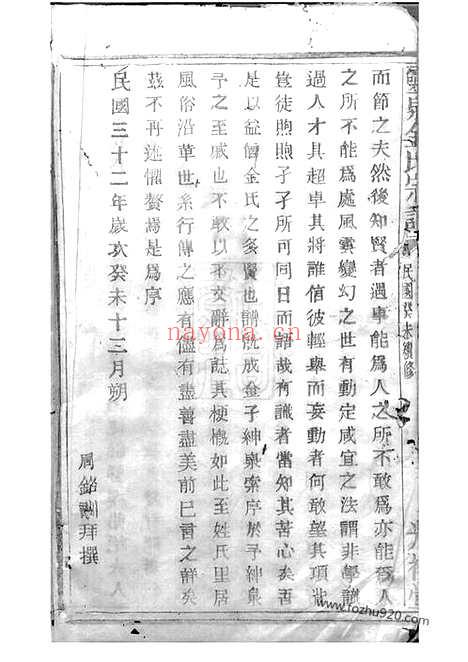 靈泉金氏宗譜
民國癸未續修
而節之夫然後知賢者遇事能爲人之所不敢爲亦能爲人
之所不能爲處風雲變幻之世有動定咸宜之法謂非學識
過人才具超卓其將誰信彼輕舉而妄動者何敢望其項背
豈徒煦煦孑孑所可同日而語哉有識者當知其苦心矣吾
是以益信金氏之多賢也譜旣成金子紳泉索序於予紳泉
予之至戚也不敢以不文辭爲誌其梗槪如此至姓氏里居
風俗沿革世系行傳之應有儘有盡善盡美前已言之詳矣
茲不再述懼贅焉是爲序
民國三十二年歲次癸未十三月朔
周銘訓拜撰
nayona.cn
www.fozhu920.com